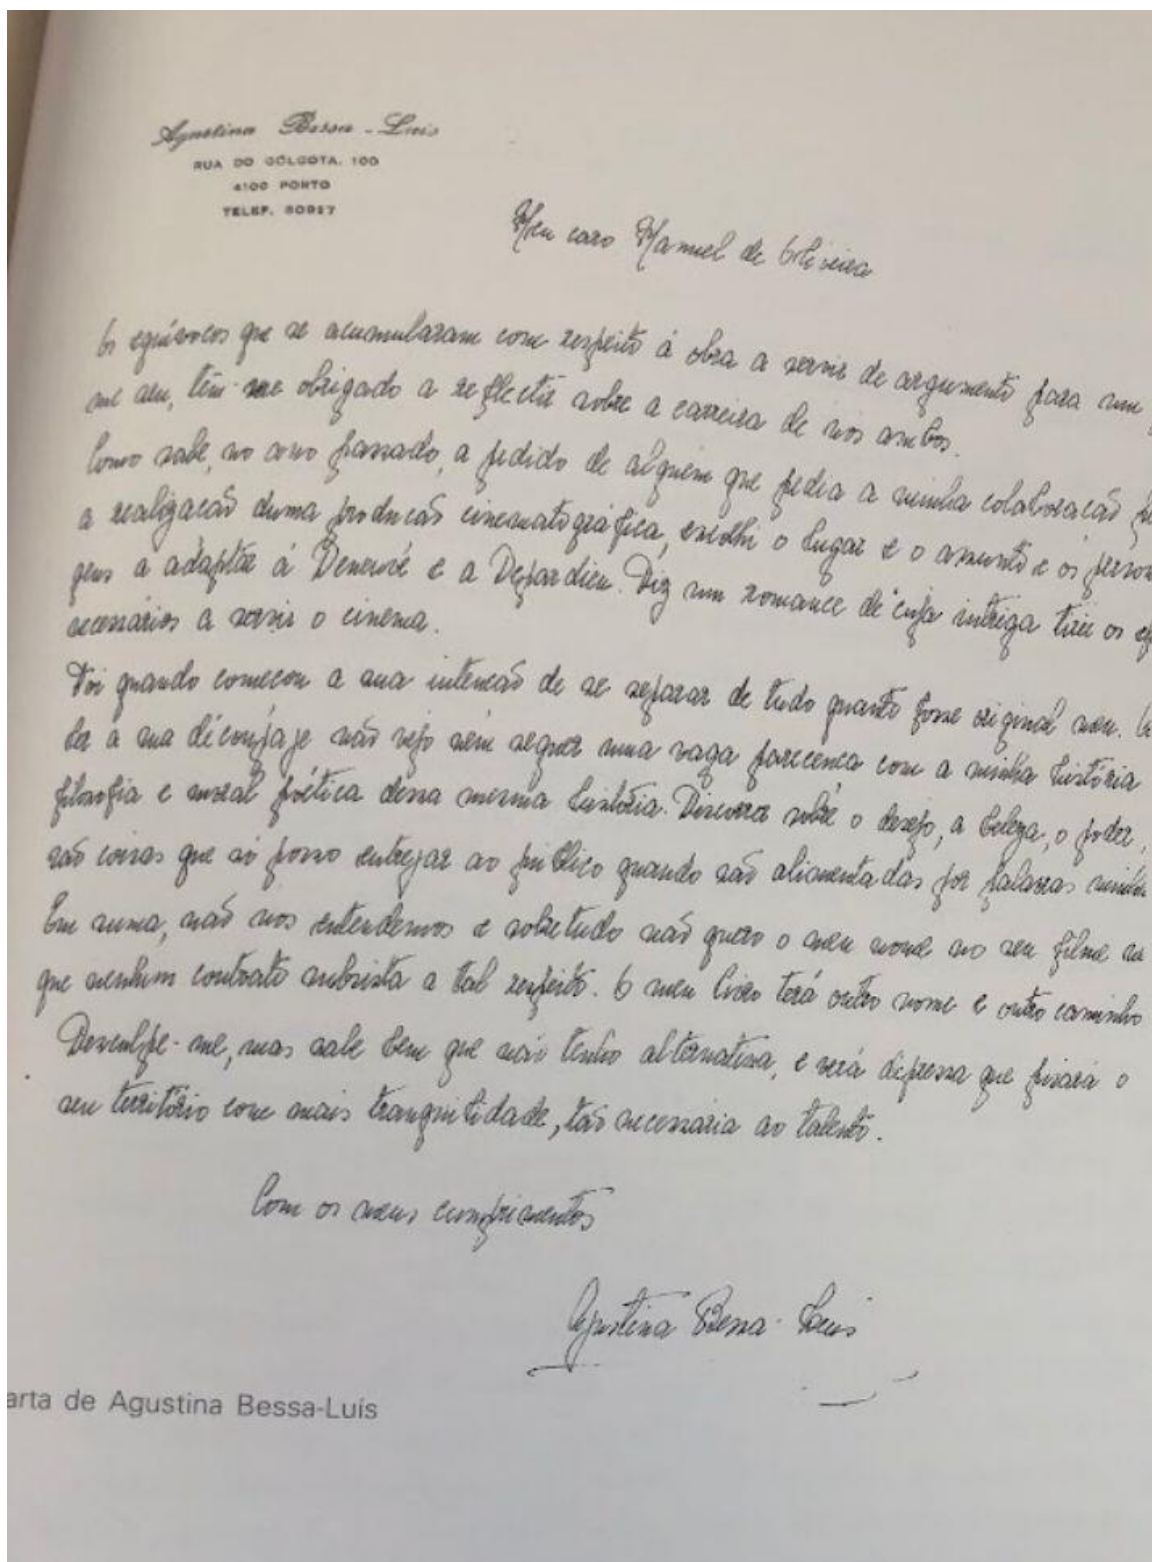 Agustina Bessa-Luís
RUA DO GÓLGOTA, 100
4100 PORTO
TELEF. 60927
Meu caro Manuel de Oliveira
Os equívocos que se acumularam com respeito à obra a servir de argumento para um
me seu, têm-me obrigado a reflectir sobre a carreira de nós ambos.
Como sabe, no ano passado, a pedido de alguém que pedia a minha colaboração
a realização duma produção cinematográfica, escolhi o lugar e o assunto e os person
gens a adaptar à Deneuve e a Depardieu. Diz um romance de cuja intriga tirei os
necessários a servir o cinema.
Foi quando começou a sua intenção de se separar de tudo quanto fosse original meu.
ler a sua découpaje não vejo nem sequer uma vaga parecença com a minha história
filosofia e moral poética dessa mesma história. Discorrer sobre o desejo, a beleza, o poder,
são coisas que só posso entregar ao público quando são alimentadas por palavras minhas
Em suma, não nos entendemos e sobretudo não quero o meu nome no seu filme
que nenhum contrato subsista a tal respeito. O meu livro terá outro nome e outro caminho
Desculpe-me, mas sabe bem que não tenho alternativa, e verá depressa que pisará o
seu território com mais tranquilidade, tão necessária ao talento.
Com os meus cumprimentos
Agustina Bessa-Luís
arta de Agustina Bessa-Luís